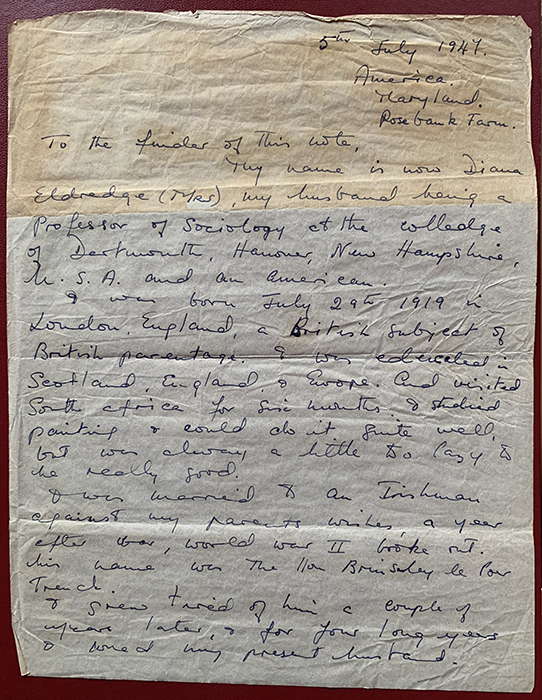 5th July 1947.
America.
Maryland.
Rosebank Farm.
To the finder of this note,
My name is now Diana
Eldredge (Mrs), my husband being a
Professor of Sociology at the colledge
of Dartmouth, Hanover, New Hampshire,
U. S. A. and an American.
I was born July 29th 1919 in
London, England, a British subject of
British parentage. I was educated in
Scotland, England, & Europe. And visited
South Africa for six months. I studied
painting & could do it quite well,
but was always a little to lazy to
be really good.
I was married to an Irishman
against my parents wishes, a year
after war, world war II broke out.
his name was The Hon Brinsley le Poer
Trench.
I grew tired of him a couple of
years later, & for four long years
I loved my present husband.